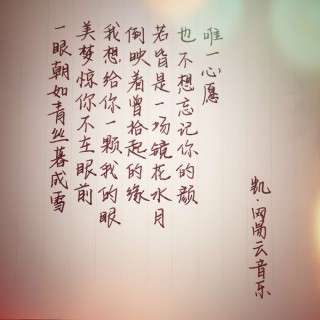 唯一心愿
也不想忘记你的颜
若皆是一场镜花水月
倒映着曾拾起的缘
我想给你一颗我的眼
美梦惊你不在眼前
一眼朝如青丝暮成雪
凯·网易云音乐